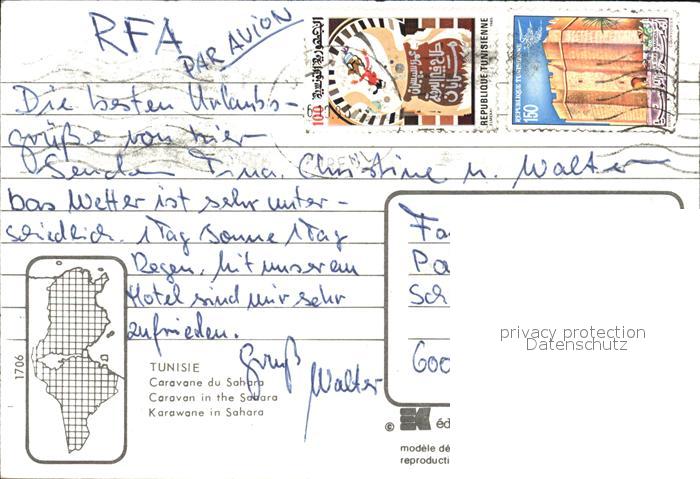 RFA
PAR AVION
100
REPUBLIQUE TUNISIENNE
REPUBLIQUE TUNISIENNE
150
Die besten Urlaubs-
grüße von hier
Senden Tina, Christine u. Walter
Das Wetter ist sehr unter-
schiedlich. 1 Tag Sonne 1 Tag
Regen. Mit unserem
Hotel sind wir sehr
zufrieden.
Gruß
Walter
Fa
Pa
Sch
600
privacy protection
Datenschutz
1706
TUNISIE
Caravane du Sahara
Caravan in the Sahara
Karawane in Sahara
© éd
modèle dé
reproducti